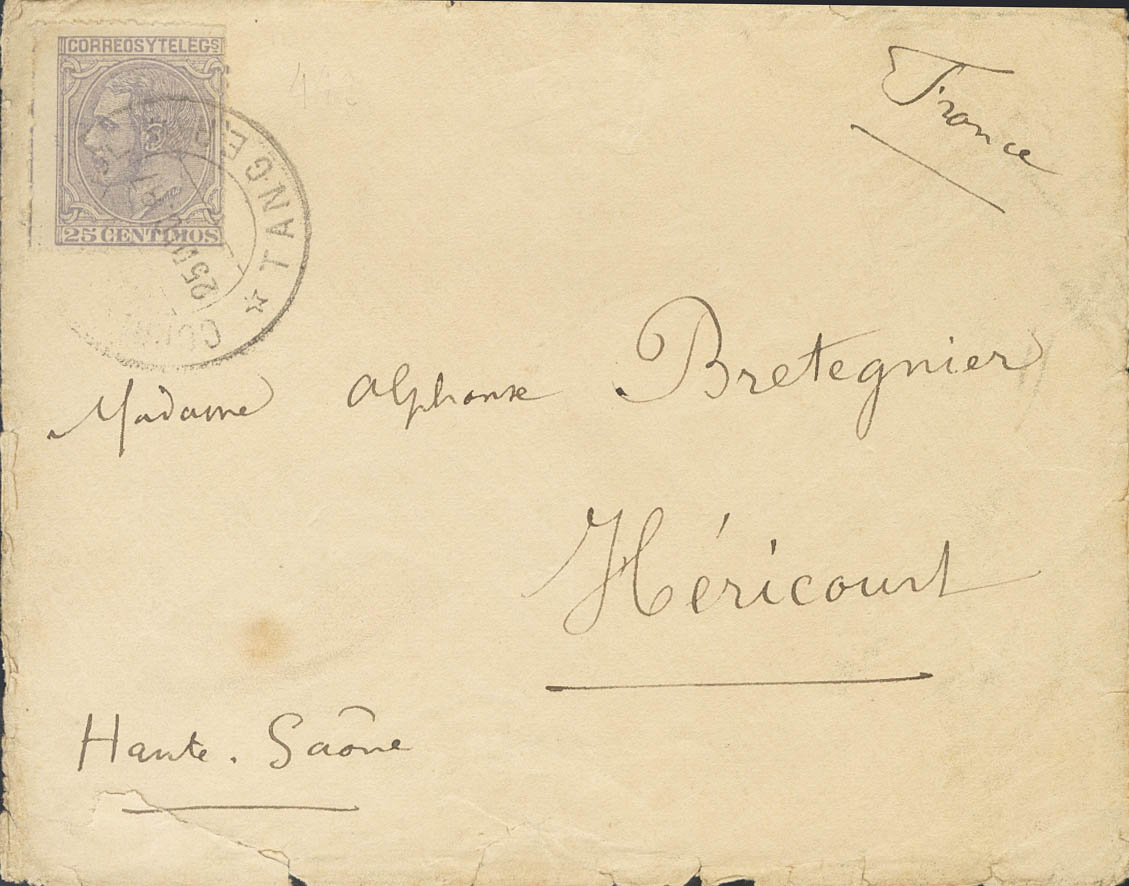 CORREOS Y TELEGS
25 CENTIMOS
TANGER
France
Madame Alphonse Bretegnier
Héricourt
Haute. Saône